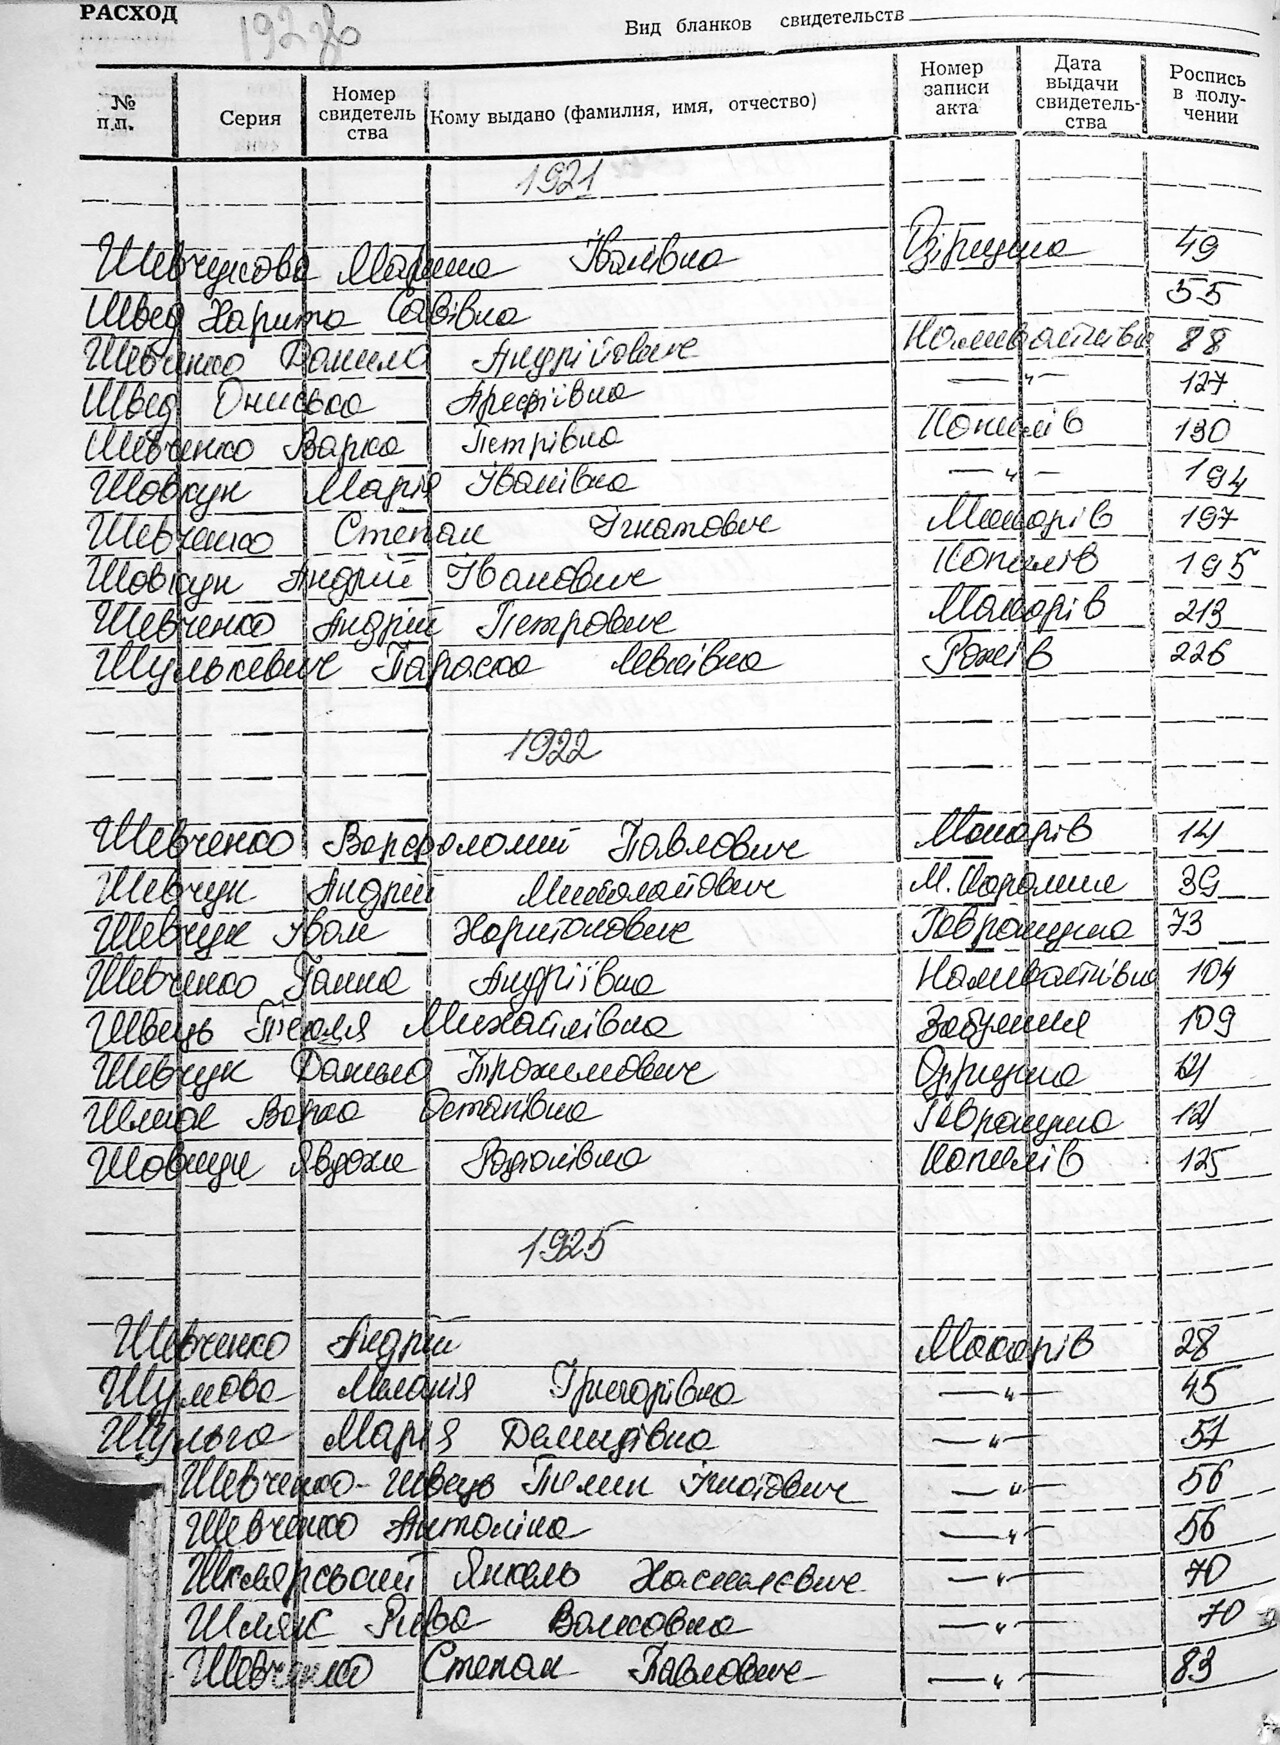 РАСХОД
192
Вид бланков свидетельств
№ п.п. Серия Номер свидетель ства Кому выдано (фамилия, имя, отчество) Номер записи акта Дата выдачи свидетель- ства Роспись в полу- чении
1921
Шевчукова Марина Іванівна 49
Швед Харита Савівна 55
Шевченко Данило Андрійович Наливайківка 88
Швед Ониська Арефіївна —"— 127
Шевченко Варка Петрівна Копилів 190
Шовкун Марія Іванівна —"— 194
Шевченко Степан Ігнатович Макарів 197
Шовкун Андрій Іванович Копилів 195
Шевченко Андрій Петрович Макарів 213
Шулькевич Параска Рожів 226
1922
Шевченко Варфоломій Павлович Макарів 14
Шевчук Андрій Миколайович М. Карашин 39
Шевчук Іван Харитонович Гавронщина 73
Шевченко Ганна Андріївна Наливайківка 104
Швець Текля Михайлівна Забуяння 109
Шевчук Данило Трохимович 121
Шпак Варка Остапівна Гавронщина 121
Шовкун Явдоха Родіонівна Копилів 125
1925
Шевченко Андрій Макарів 28
Шумова Меланія Григорівна —"— 45
Шульга Марія Демидівна —"— 51
Шевченко-Швець Ігнатович —"— 56
Шевченко Антоніна —"— 56
Шклярський Янкель —"— 70
Шляк Рива Волковна —"— 70
Шевченко Степан Павлович —"— 83